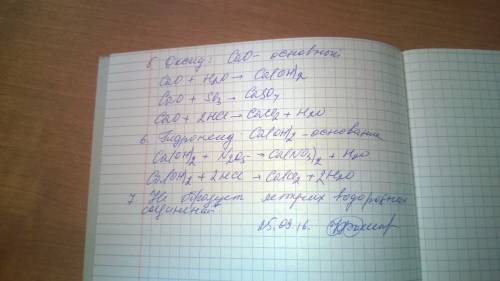 5. Оксид: CaO – основный
CaO + H2O → Ca(OH)2
CaO + SO3 → CaSO4
CaO + 2HCl → CaCl2 + H2O
6. Гидроксид Ca(OH)2 – основание
Ca(OH)2 + N2O5 → Ca(NO3)2 + H2O
Ca(OH)2 + 2HCl → CaCl2 + 2H2O
7. Не образует летучих водородных
соединений
25.09.16.